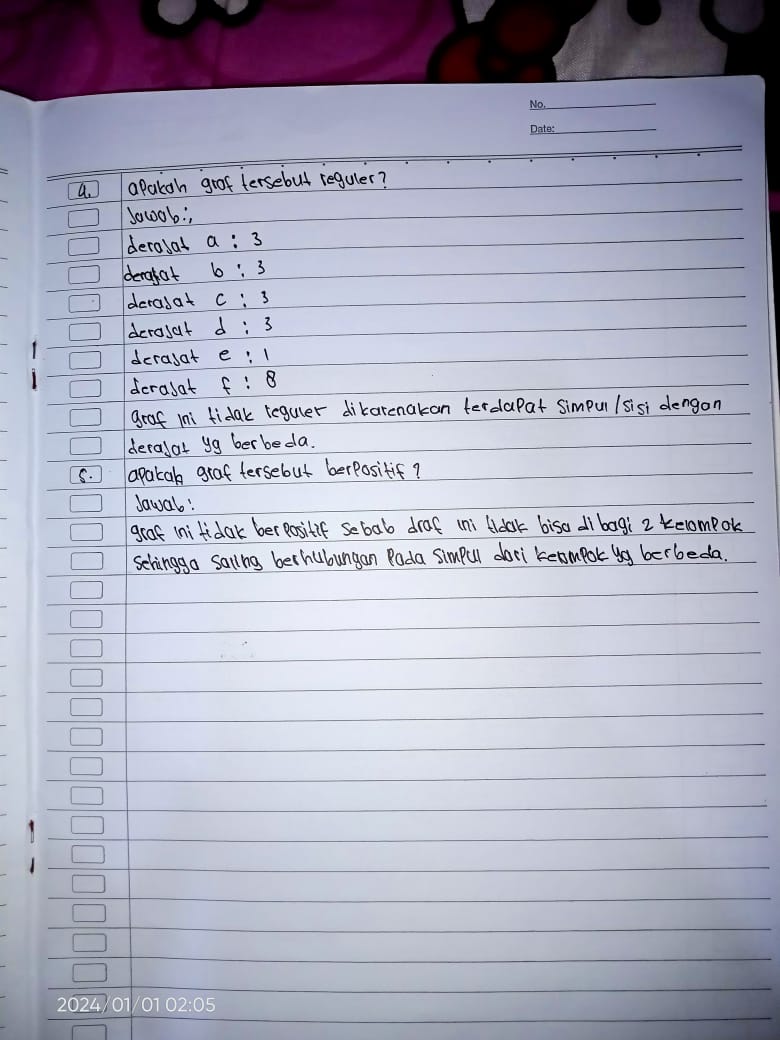 No.
Date:
4. apakah graf tersebut reguler?
Jawab:,
derajat a : 3
derajat b : 3
derajat c : 3
derajat d : 3
derajat e : 1
derajat f : 8
graf ini tidak reguler dikarenakan terdapat simpul/sisi dengan
derajat yg berbeda.
5. apakah graf tersebut berpositif?
Jawab:
graf ini tidak berpositif sebab draf ini tidak bisa di bagi 2 kelompok
sehingga saling berhubungan pada simpul dari kelompok yg berbeda.
2024/01/01 02:05